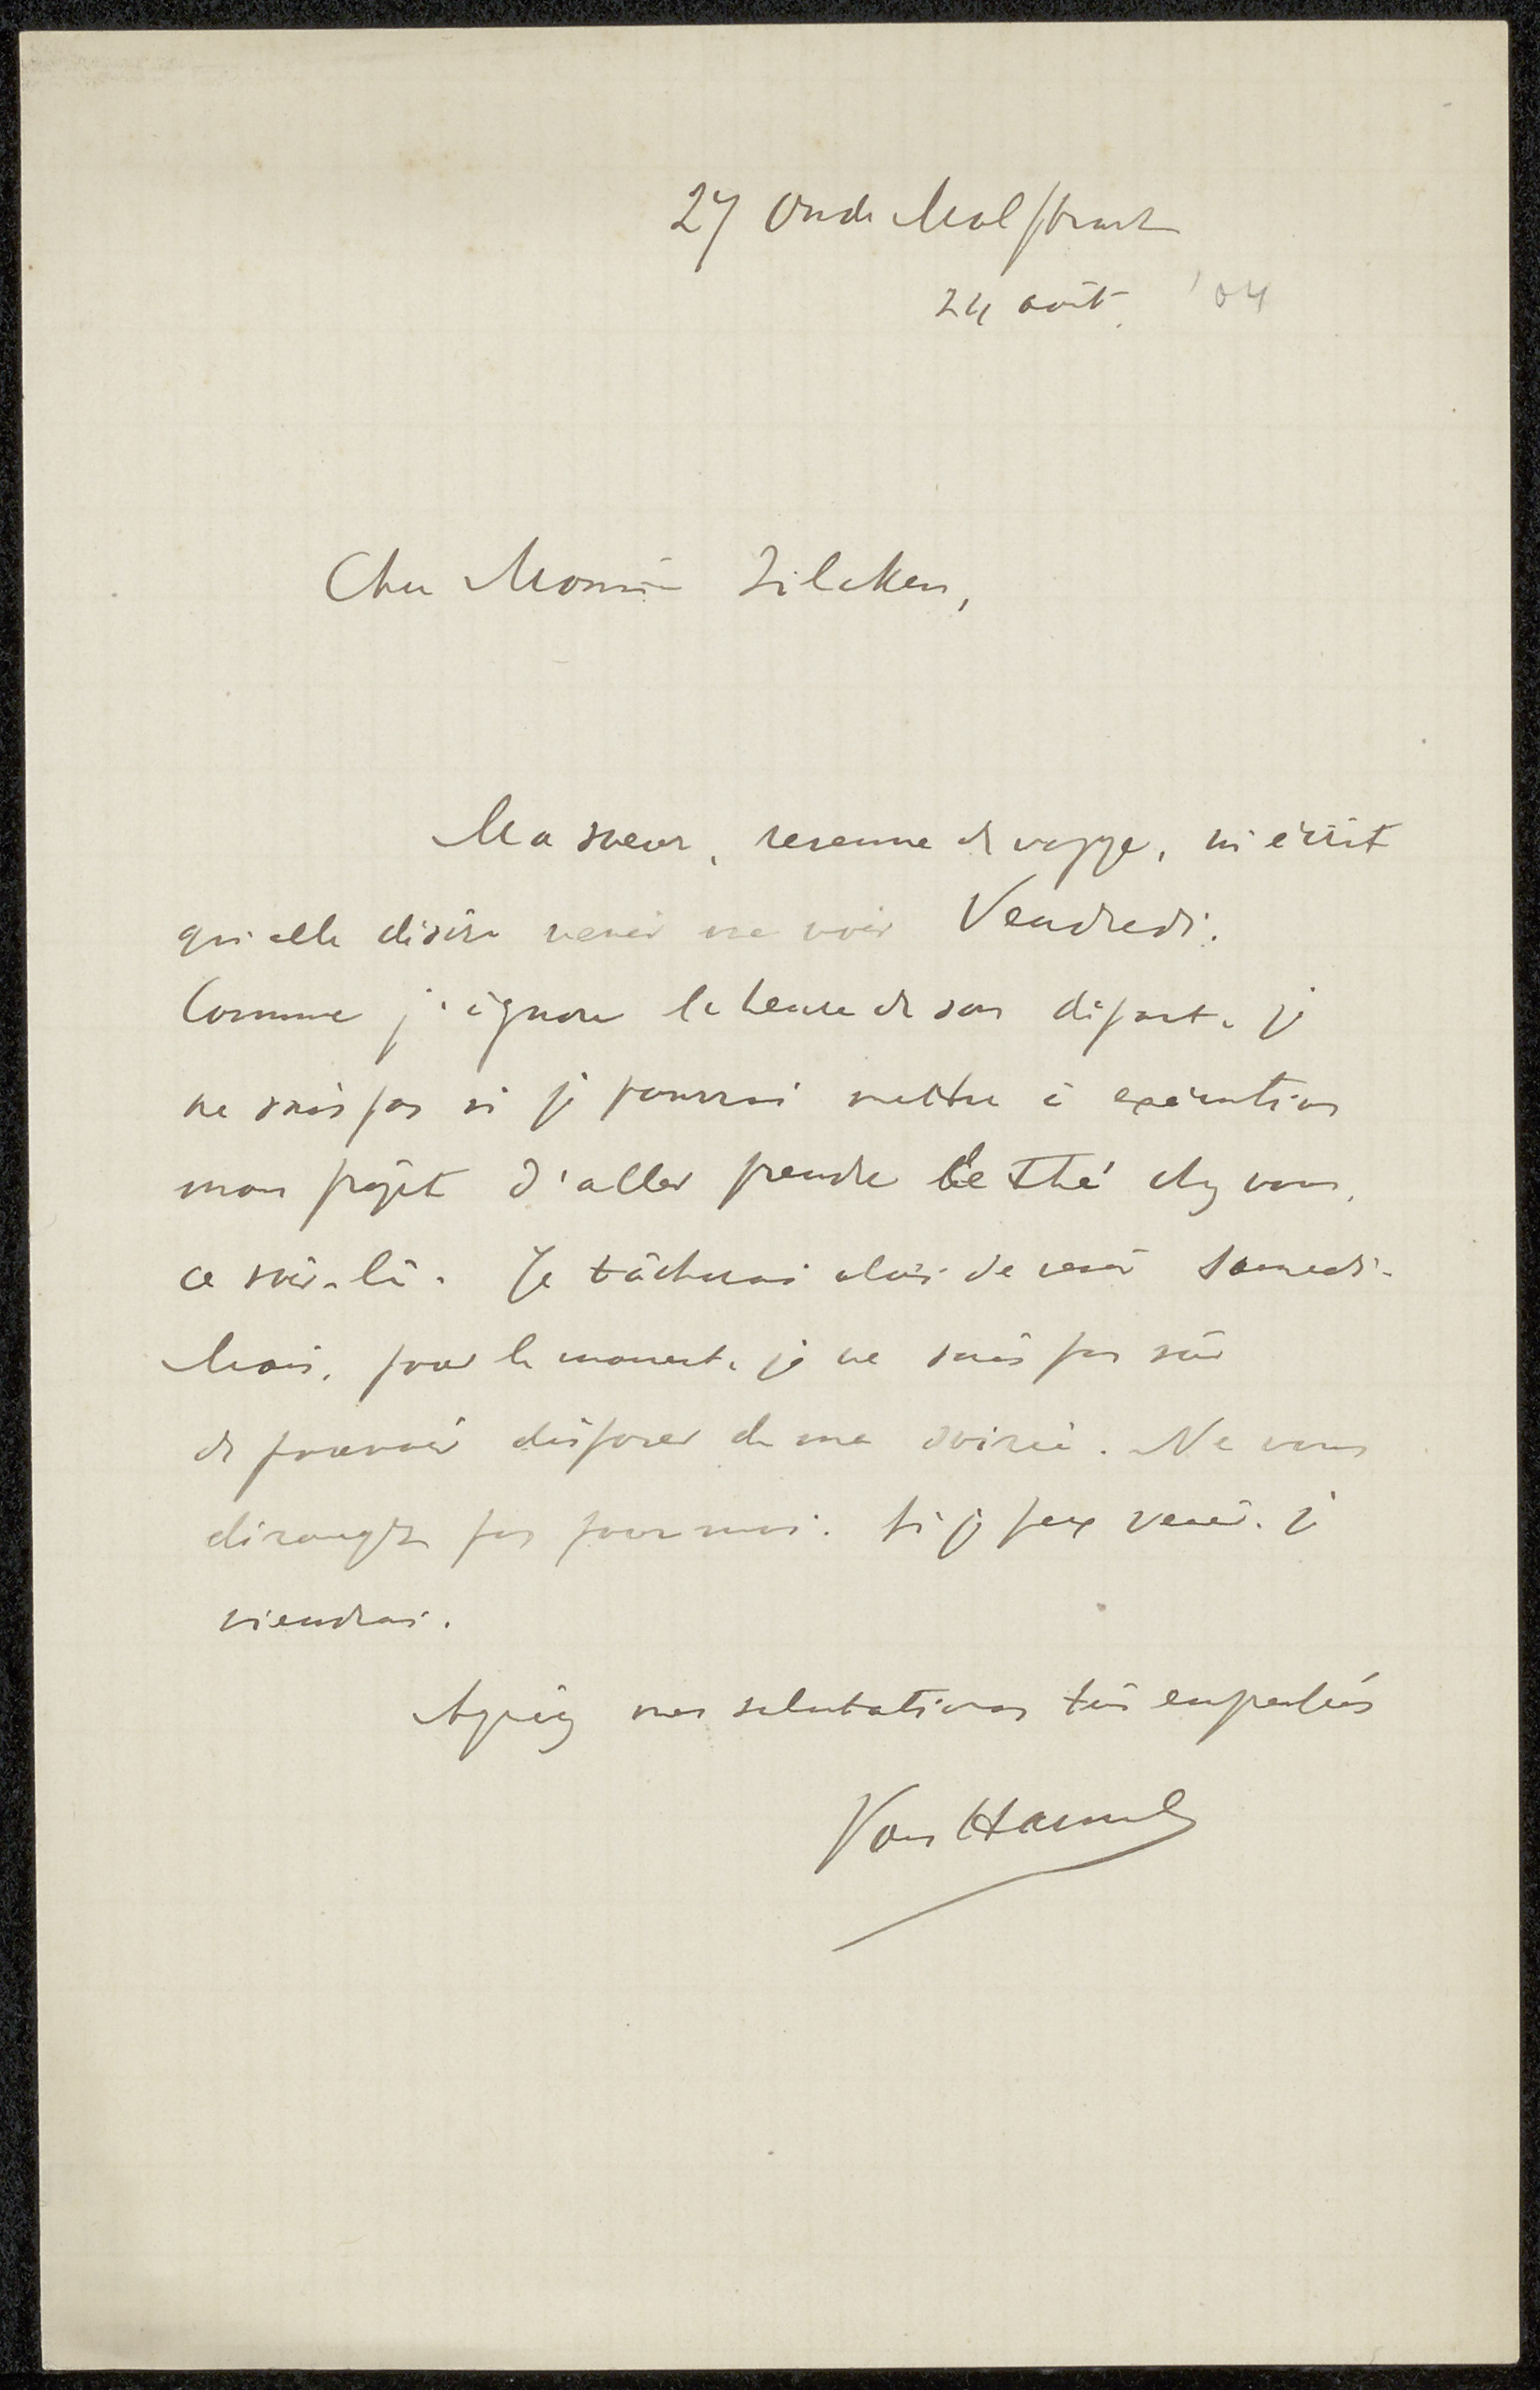 27 Oude Molstraat
24 août '04
Cher Monsieur Zilcken,
Ma soeur, revenue de voyage, m'écrit
qu'elle désire venir me voir Vendredi.
Comme j'ignore l'heure de son départ, je
ne sais pas si je pourrai mettre à exécution
mon projet d'aller prendre le thé chez vous,
ce soir-là. Je tâcherai alors de venir Samedi.
Mais, pour le moment, je ne suis pas sûr
de pouvoir disposer de ma soirée. Ne vous
dérangez pas pour moi. Si je peux venir, je
viendrai.
Agréez mes salutations très empressées
Van Hamel